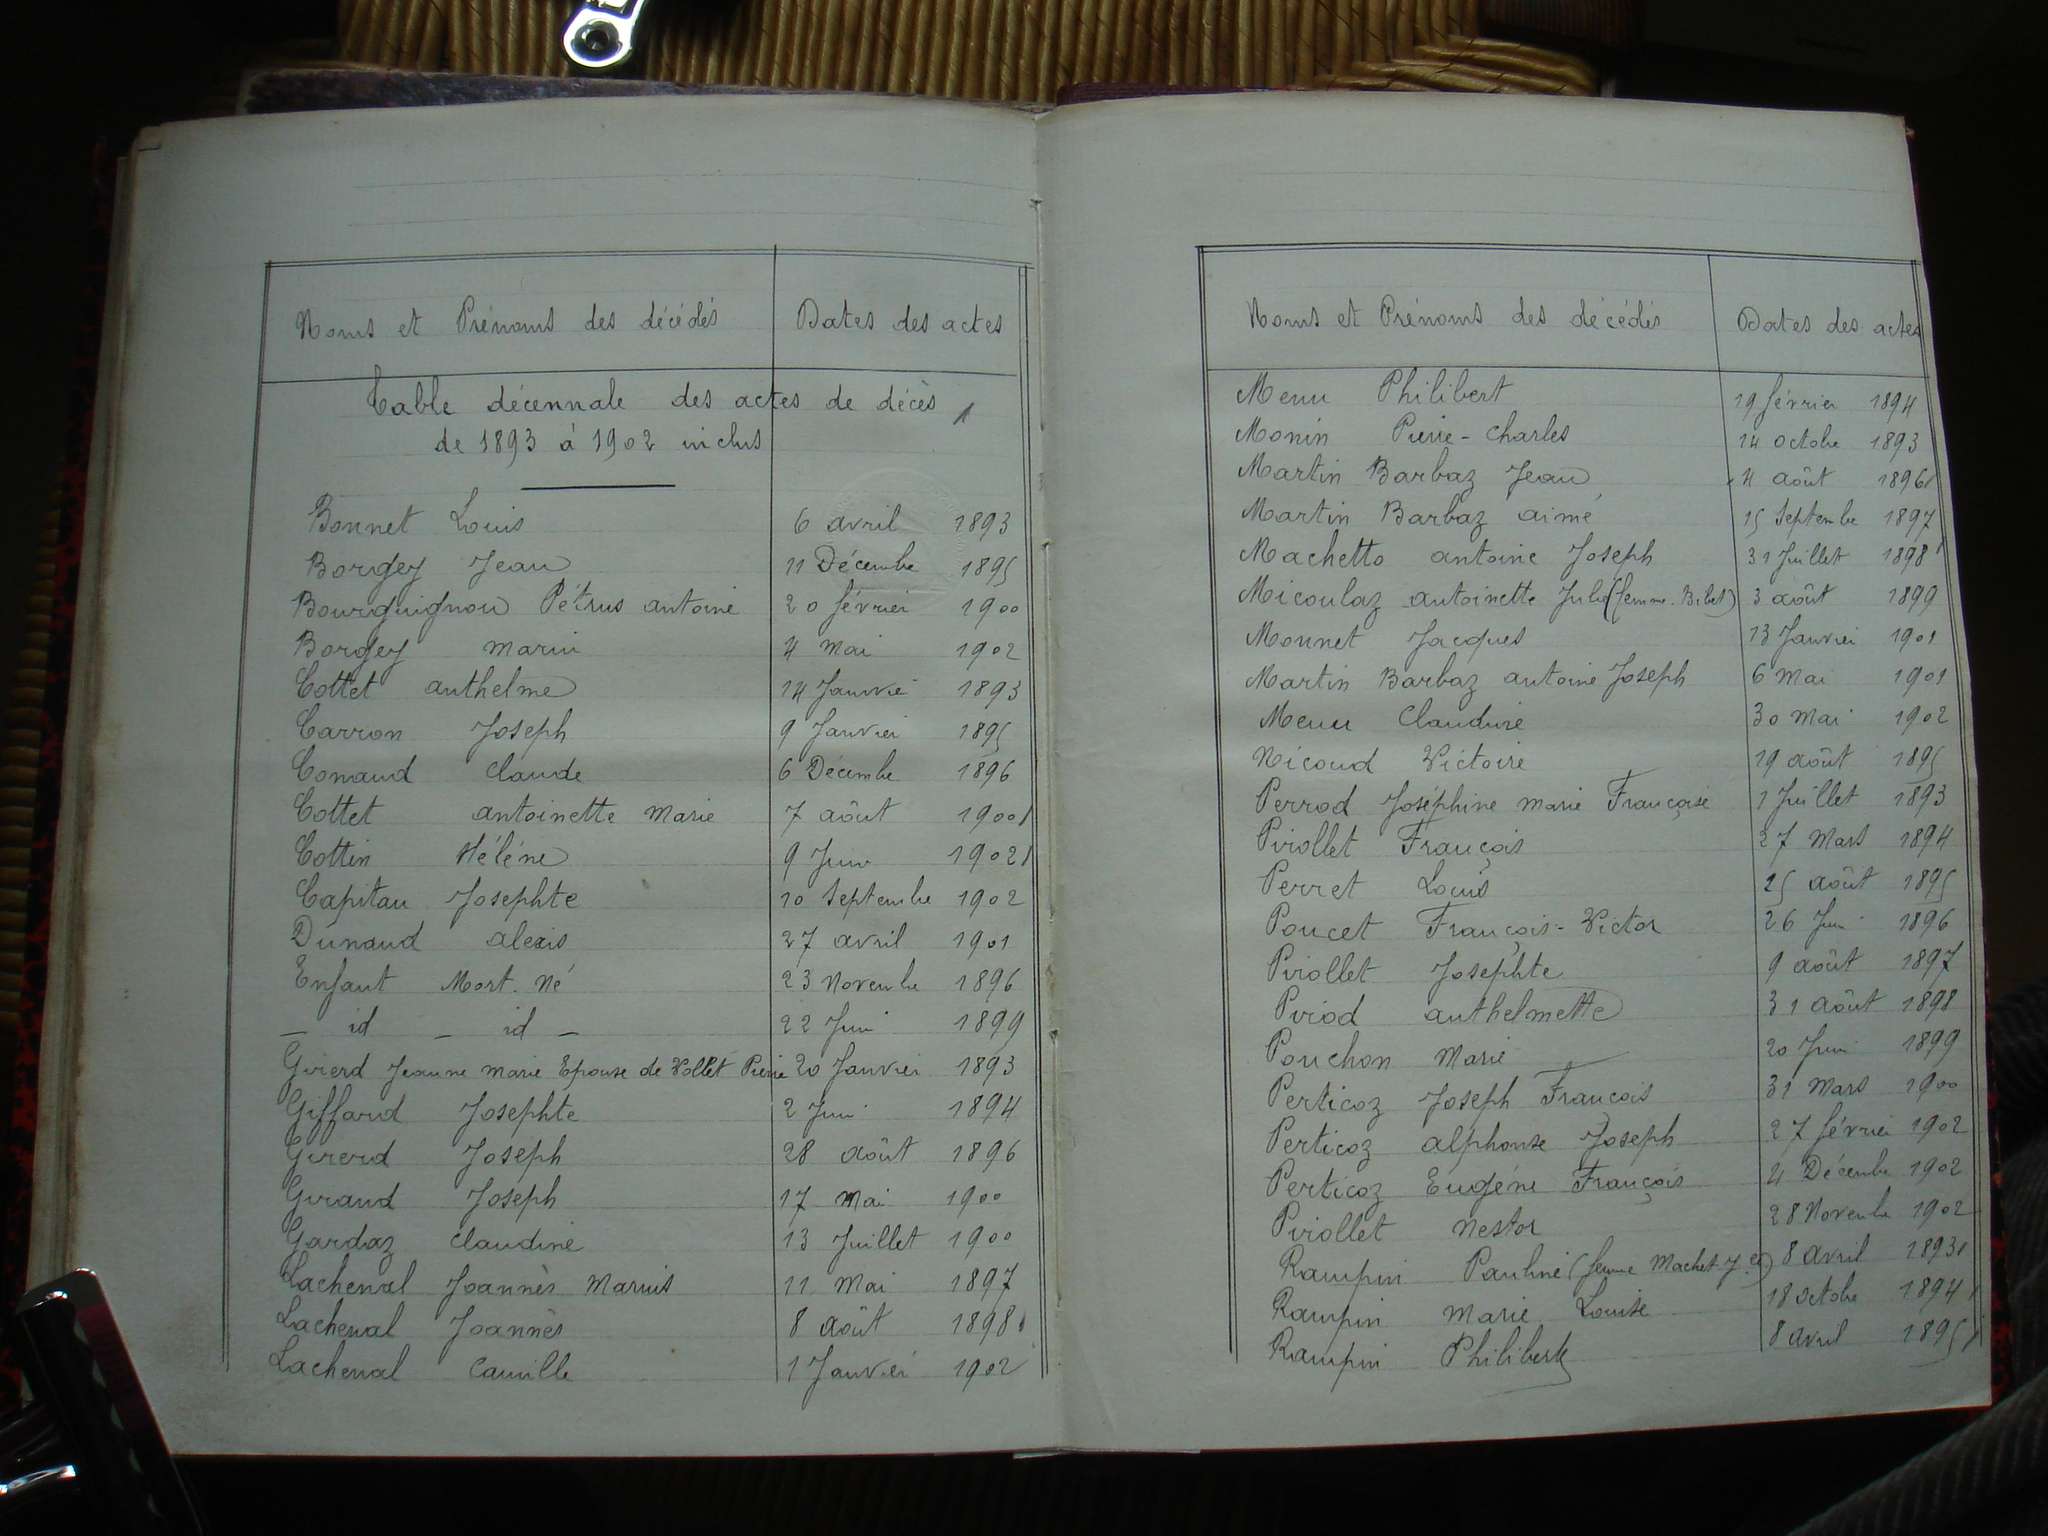 Noms et Prénoms des décédés Dates des actes
Table décennale des actes de décès
de 1893 à 1902 inclus
Bonnet Louis 6 avril 1893
Borgey Jean 11 Décembre 1895
Bourguignon Pétrus antoine 20 février 1900
Borgey Marin 4 Mai 1902
Cottet anthelme 14 Janvier 1893
Carron Joseph 9 Janvier 1895
Conaud Claude 6 Décembre 1896
Cottet antoinette Marie 7 août 1900
Cottin Hélène 9 Juin 1902
Capitan Josephte 10 Septembre 1902
Dunaud alexis 27 avril 1901
Enfant Mort. Né 23 Novembre 1896
_ id _ id _ 22 Juin 1899
Girerd Jeanne Marie Epouse de Vollet Pierre 20 Janvier 1893
Giffard Josephte 2 Juin 1894
Girerd Joseph 28 août 1896
Giraud Joseph 17 Mai 1900
Gardaz Claudine 13 Juillet 1900
Lacheval Joannès Marius 11 Mai 1897
Lacheval Joannès 8 août 1898
Lacheval Camille 1 Janvier 1902
Noms et Prénoms des décédés Dates des actes
Menu Philibert 19 février 1894
Monin Pierre-Charles 14 octobre 1893
Martin Barbaz Jean 4 août 1896
Martin Barbaz aimé 15 Septembre 1897
Machetto antoine Joseph 31 Juillet 1898
Micoulaz antoinette Julie (femme. Bibet) 3 août 1899
Monnet Jacques 13 Janvier 1901
Martin Barbaz antoine Joseph 6 Mai 1901
Menu Claudine 30 Mai 1902
Nicoud Victoire 19 août 1895
Perrod Joséphine Marie Françoise 1 Juillet 1893
Piriollet François 27 Mars 1894
Perret Louis 25 août 1895
Poncet François-Victor 26 Juin 1896
Piriollet Josephte 9 août 1897
Piriod anthelmette 31 août 1898
Pouchon Marie 20 Juin 1899
Perticoz Joseph François 31 Mars 1900
Perticoz alphonse Joseph 27 février 1902
Perticoz Eugéne François 4 Décembre 1902
Piriollet Nestor 28 Novembre 1902
Rampin Pauline (femme Machet J.) 8 avril 1893
Rampin Marie Louise 18 octobre 1894
Rampin Philibert 8 avril 1895